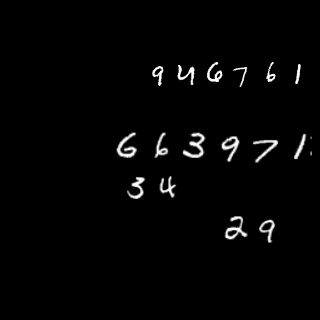 946761
663971
34
29